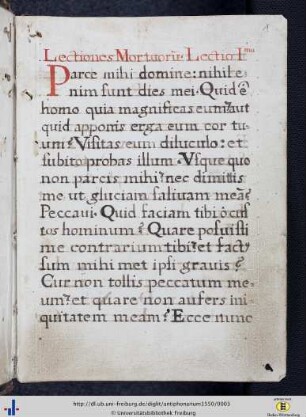 Lectiones Mortuorũ. Lectio I.ma
1
Parce mihi domine: nihil e
nim sunt dies mei. Quid ẽ
homo quia magnificas eum? aut
quid apponis erga eum cor tu
um? Visitas eum diluculo: et
subito probas illum. Vsque quo
non parcis mihi? nec dimittis
me ut gluciam salivam meã?
Peccavi. Quid faciam tibi o cus
tos hominum? Quare posuisti
me contrarium tibi? et fact9
sum mihi met ipsi gravis?
Cur non tollis peccatum me
um? et quare non aufers ini
quitatem meam? Ecce nunc
http://dl.ub.uni-freiburg.de/diglit/antiphonarium1550/0003
© Universitätsbibliothek Freiburg
Baden-Württemberg